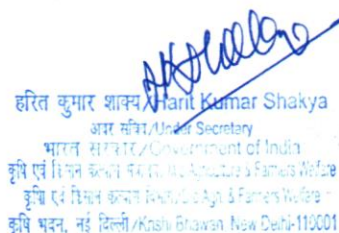 हरित कुमार शाक्य/Harit Kumar Shakya
अवर सचिव/Under Secretary
भारत सरकार/Government of India
कृषि एवं किसान कल्याण Agriculture & Farmers Welfare
कृषि एवं किसान कल्याण Agri. & Farmers Welfare
कृषि भवन, नई दिल्ली/Krishi Bhawan, New Delhi-110001